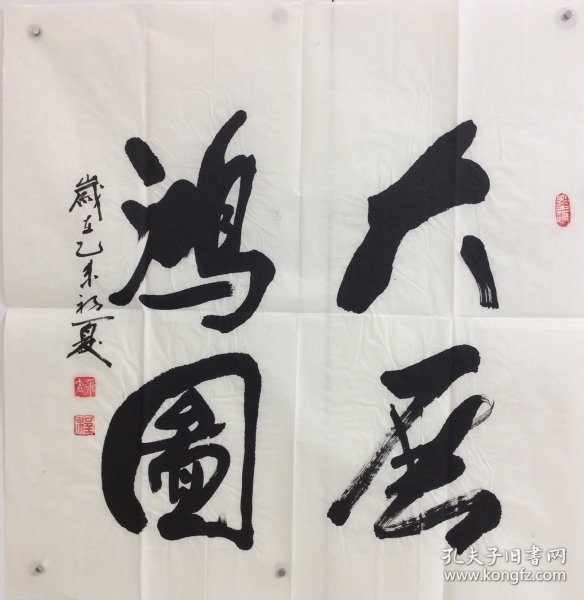 大展
鸿图
岁在乙未初夏
孔夫子旧书网
www.kongfz.com